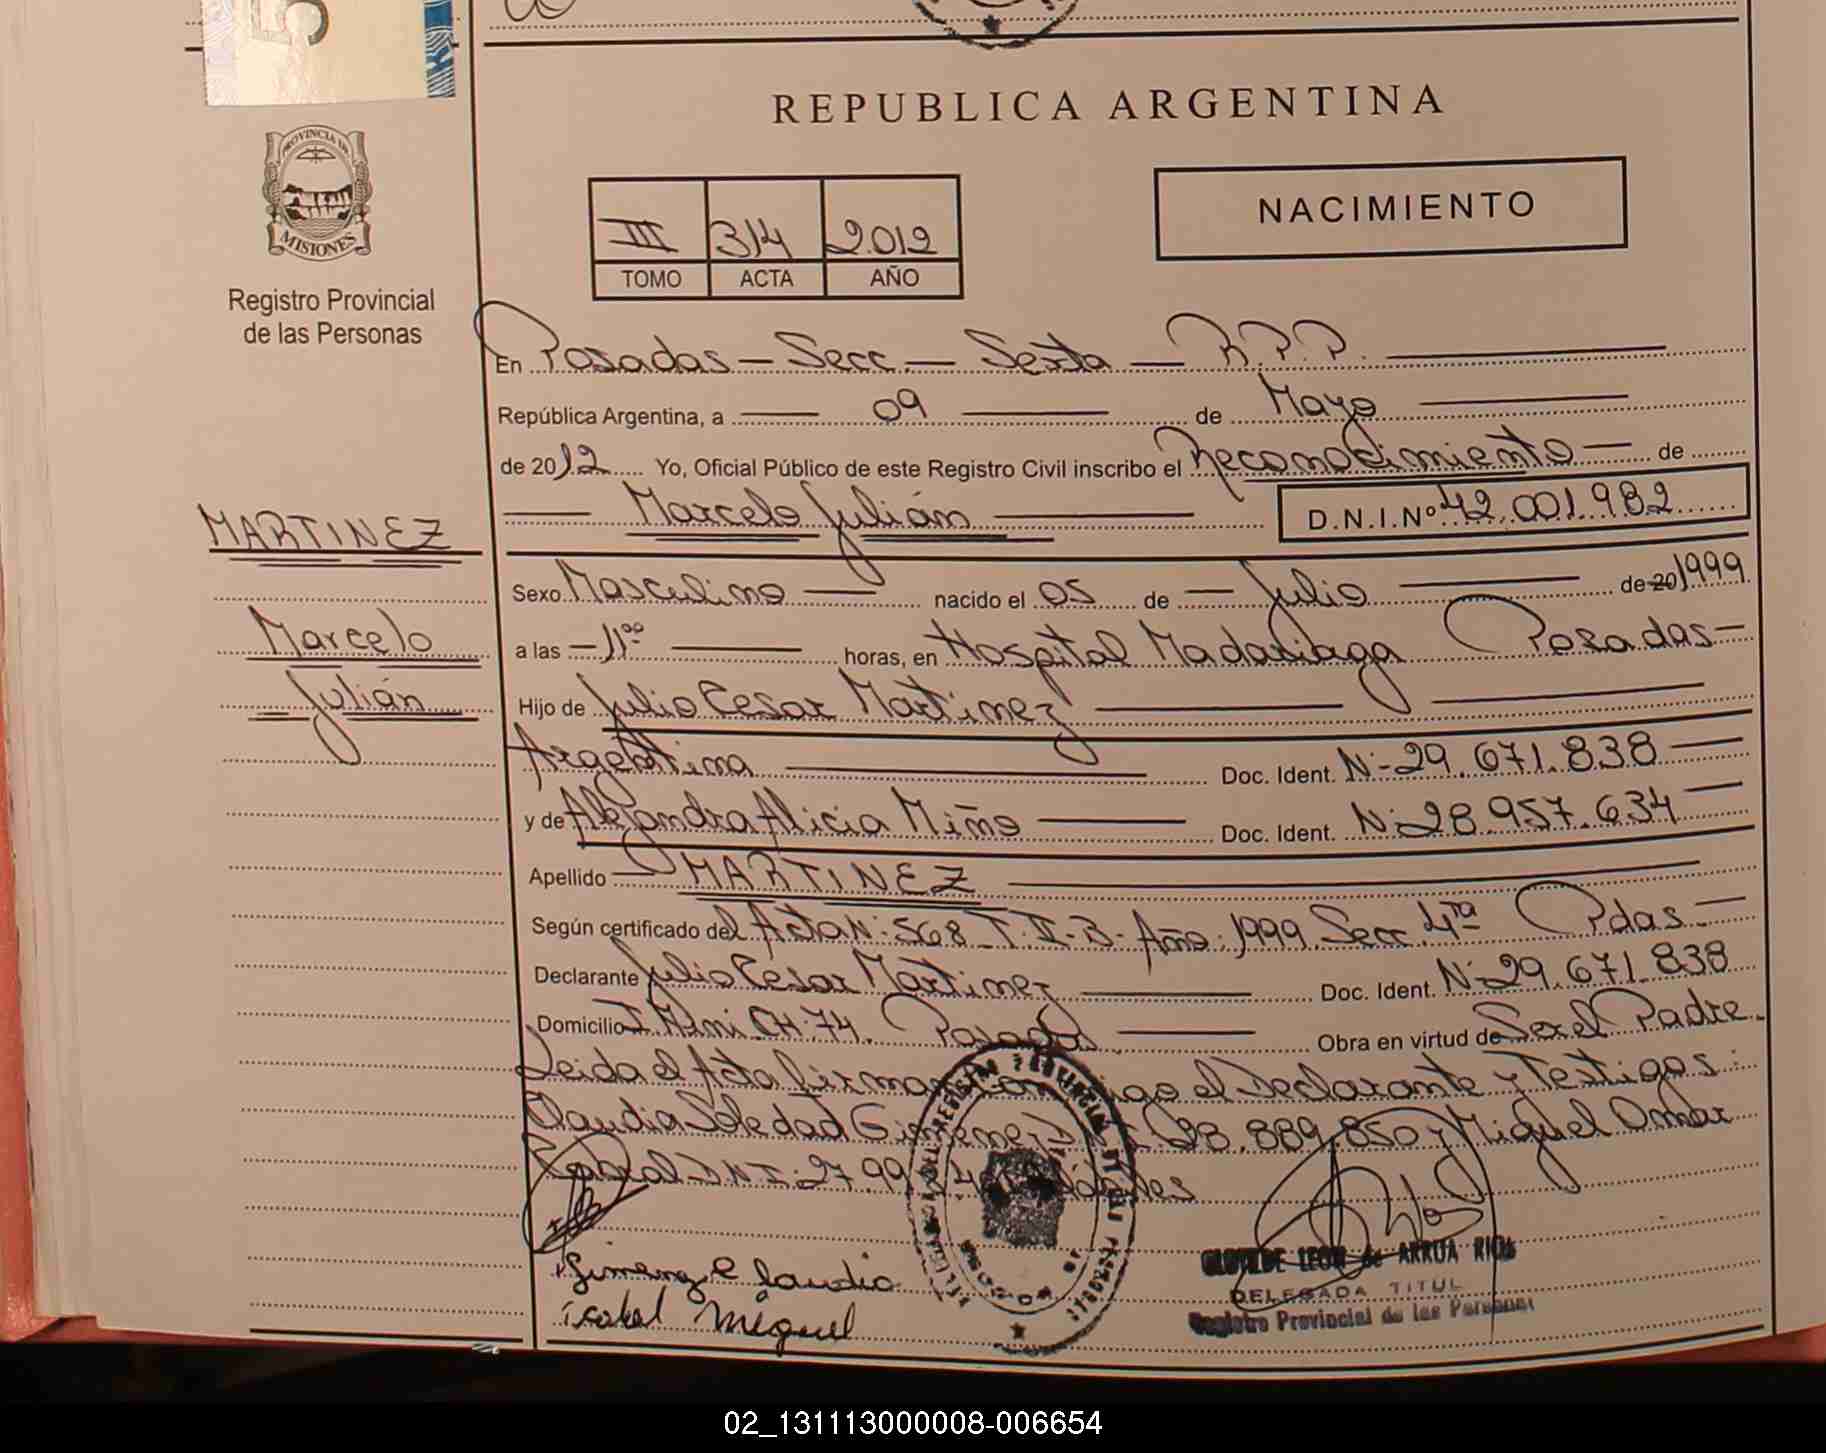 PROVINCIA DE
MISIONES
Registro Provincial
de las Personas
REPUBLICA ARGENTINA
NACIMIENTO
III 314 2012
TOMO ACTA AÑO
En Posadas - Secc. - Sexta - R.P.P.
República Argentina, a 09 de Mayo
de 2012 Yo, Oficial Público de este Registro Civil inscribo el Reconocimiento - de
Marcelo Julián D.N.I.Nº 42.001.982
MARTINEZ
Marcelo
Julián
Sexo Masculino nacido el 05 de - Julio de 20 1999
a las - 11°° horas, en Hospital Madariaga Posadas -
Hijo de Julio Cesar Martinez
Argentina Doc. Ident. Nº 29.671.838
y de Alejandra Alicia Miño Doc. Ident. Nº 28.957.634
Apellido MARTINEZ
Según certificado del Acta Nº 568 T. II-B- Año 1999 Secc. 4ta Pdas -
Declarante Julio Cesar Martinez Doc. Ident. Nº 29.671.838
Domicilio CH. 74. Posadas Obra en virtud de Ser el Padre.
Leida el Acta firman conmigo el Declarante y Testigos:
Claudia Soledad Gimenez 28.889.850 y Miguel Omar
D.N.I. 27.99
Gimenez Claudia
Miguel
CLOTILDE LEON de ARRUA RIOS
DELEGADA TITUL
Registro Provincial de las Personas
02_131113000008-006654